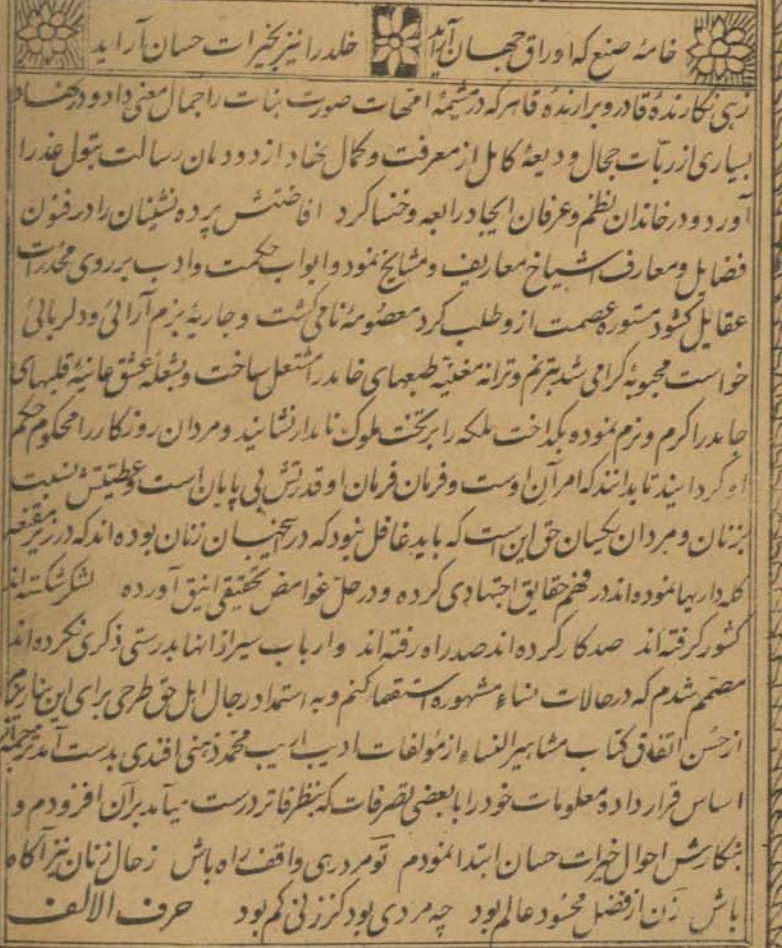 خامه صنع که اوراق جهان آراید خلد را نیز بخیرات حسان آراید
زهی نگارندهٔ قادر و برارندهٔ قاهر که در مشیمهٔ امهات صورت بنات را جمال معنی داد و در نهاد
بسیاری از ربّات حجال ودیعهٔ کامل از معرفت و کمال نهاد از دودمان رسالت بتول عذرا
آورد و در خاندان نظم و عرفان ایجاد رابعه و خنسا کرد افاضتش پرده نشینان را در فنون
فضایل و معارف اشیاخ معاریف و مشایخ نمود و ابواب حکمت و ادب بر روی مخدّرات
عقایل کشود مستوره عصمت از و طلب کرد معصومهٔ نامی کشت و جاریهٔ بزم آرائی و دلربائی
خواست محبوبهٔ کرامی شد بترنم و ترانه مغنیّه طبعهای خامد را مشتعل ساخت و بشعلهٔ عشق غانیهٔ قلبهای
جامد را کرم و نرم نموده بکداخت ملکه را بر تخت ملوک نامدار نشانید و مردان روزکار را محکوم حکم
او کردانید تا بدانند که امر آن اوست و فرمان فرمان او قدرتش بی پایان است و عطیتش نسبت
بزنان و مردان یکسان حق این است که باید غافل نبود که در جهان زنان بوده اند که در زیر مقنعه
کله داریها نموده اند در فهم حقایق اجتهادی کرده و در حل غوامض تحقیقی انیق آورده لشکر شکسته اند
کشور کرفته اند صد کار کرده اند صد راه رفته اند و ارباب سیر از انها بدرستی ذکری نکرده اند
مصمّم شدم که در حالات نساء مشهوره استقصا کنم و به استمداد رجال اهل حق طرحی برای این بنا ریزم
از حسن اتفاق کتاب مشاهیر النساء از مؤلفات ادیب اریب محمد ذهنی افندی بدست آمد ترجمهٔ آنرا
اساس قرار داده معلومات خود را با بعضی تصرفات که بنظر فاتر درست میآمد بر آن افزودم و
بنکارش احوال خیرات حسان ابتدا نمودم تو مردرهی واقف راه باش ز حال زنان نیز آکاه
باش زن از فضل محسود عالم بود چه مردی بود کز زنی کم بود حرف الالف